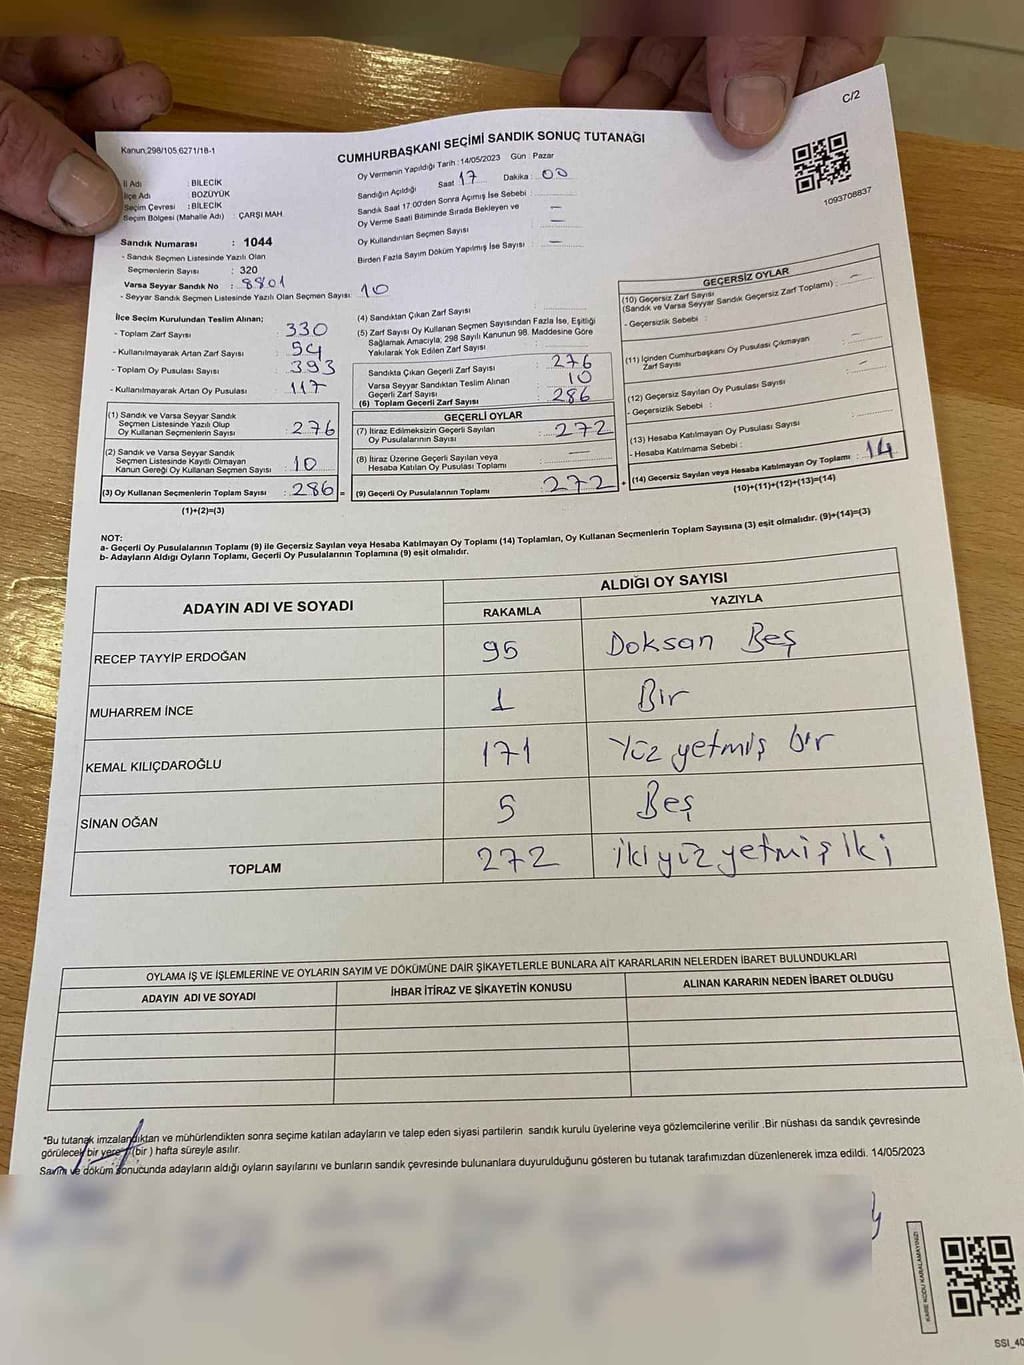 C/2
Kanun.298/105,6271/18-1
CUMHURBAŞKANI SEÇİMİ SANDIK SONUÇ TUTANAĞI
İl Adı : BİLECİK
İlçe Adı : BOZÜYÜK
Seçim Çevresi : BİLECİK
Seçim Bölgesi (Mahalle Adı) : ÇARŞI MAH.
Sandık Numarası : 1044
- Sandık Seçmen Listesinde Yazılı Olan
Seçmenlerin Sayısı : 320
Varsa Seyyar Sandık No : 8801
- Seyyar Sandık Seçmen Listesinde Yazılı Olan Seçmen Sayısı: 10
Oy Vermenin Yapıldığı Tarih : 14/05/2023 Gün : Pazar
Sandığın Açıldığı Saat 17 Dakika : 00
Sandık Saat 17.00'den Sonra Açımış İse Sebebi : —
Oy Verme Saati Bitiminde Sırada Bekleyen ve
Oy Kullandırılan Seçmen Sayısı —
Birden Fazla Sayım Döküm Yapılmış İse Sayısı : —
1093708837
İlçe Seçim Kurulundan Teslim Alınan;
- Toplam Zarf Sayısı : 330
- Kullanılmayarak Artan Zarf Sayısı : 54
- Toplam Oy Pusulası Sayısı : 393
- Kullanılmayarak Artan Oy Pusulası : 117
(1) Sandık ve Varsa Seyyar Sandık
Seçmen Listesinde Yazılı Olup
Oy Kullanan Seçmenlerin Sayısı : 276
(2) Sandık ve Varsa Seyyar Sandık
Seçmen Listesinde Kayıtlı Olmayan
Kanun Gereği Oy Kullanan Seçmen Sayısı : 10
(3) Oy Kullanan Seçmenlerin Toplam Sayısı : 286 =
(1)+(2)=(3)
(4) Sandıktan Çıkan Zarf Sayısı :
(5) Zarf Sayısı Oy Kullanan Seçmen Sayısından Fazla İse, Eşitliği
Sağlamak Amacıyla; 298 Sayılı Kanunun 98. Maddesine Göre
Yakılarak Yok Edilen Zarf Sayısı :
Sandıkta Çıkan Geçerli Zarf Sayısı : 276
Varsa Seyyar Sandıktan Teslim Alınan
Geçerli Zarf Sayısı : 10
(6) Toplam Geçerli Zarf Sayısı : 286
GEÇERLİ OYLAR
(7) İtiraz Edilmeksizin Geçerli Sayılan
Oy Pusulalarının Sayısı : 272
(8) İtiraz Üzerine Geçerli Sayılan veya
Hesaba Katılan Oy Pusulası Toplamı : —
(9) Geçerli Oy Pusulalarının Toplamı : 272 +
GEÇERSİZ OYLAR
(10) Geçersiz Zarf Sayısı
(Sandık ve Varsa Seyyar Sandık Geçersiz Zarf Toplamı) : —
- Geçersizlik Sebebi :
(11) İçinden Cumhurbaşkanı Oy Pusulası Çıkmayan
Zarf Sayısı : —
(12) Geçersiz Sayılan Oy Pusulası Sayısı : —
- Geçersizlik Sebebi :
(13) Hesaba Katılmayan Oy Pusulası Sayısı :
- Hesaba Katılmama Sebebi :
(14) Geçersiz Sayılan veya Hesaba Katılmayan Oy Toplamı : 14
(10)+(11)+(12)+(13)=(14)
NOT:
a- Geçerli Oy Pusulalarının Toplamı (9) ile Geçersiz Sayılan veya Hesaba Katılmayan Oy Toplamı (14) Toplamları, Oy Kullanan Seçmenlerin Toplam Sayısına (3) eşit olmalıdır. (9)+(14)=(3)
b- Adayların Aldığı Oyların Toplamı, Geçerli Oy Pusulalarının Toplamına (9) eşit olmalıdır.
ADAYIN ADI VE SOYADI
ALDIĞI OY SAYISI
RAKAMLA YAZIYLA
RECEP TAYYİP ERDOĞAN 95 Doksan Beş
MUHARREM İNCE 1 Bir
KEMAL KILIÇDAROĞLU 171 Yüz yetmiş bir
SİNAN OĞAN 5 Beş
TOPLAM 272 iki yüz yetmiş iki
OYLAMA İŞ VE İŞLEMLERİNE VE OYLARIN SAYIM VE DÖKÜMÜNE DAİR ŞİKAYETLERLE BUNLARA AİT KARARLARIN NELERDEN İBARET BULUNDUKLARI
ADAYIN ADI VE SOYADI İHBAR İTİRAZ VE ŞİKAYETİN KONUSU ALINAN KARARIN NEDEN İBARET OLDUĞU
*Bu tutanak imzalandıktan ve mühürlendikten sonra seçime katılan adayların ve talep eden siyasi partilerin sandık kurulu üyelerine veya gözlemcilerine verilir .Bir nüshası da sandık çevresinde
görülecek bir yere (bir ) hafta süreyle asılır.
Sayım ve döküm sonucunda adayların aldığı oyların sayılarını ve bunların sandık çevresinde bulunanlara duyurulduğunu gösteren bu tutanak tarafımızdan düzenlenerek imza edildi. 14/05/2023
KARE KODU KARALAMAYINIZ!
SSI_40